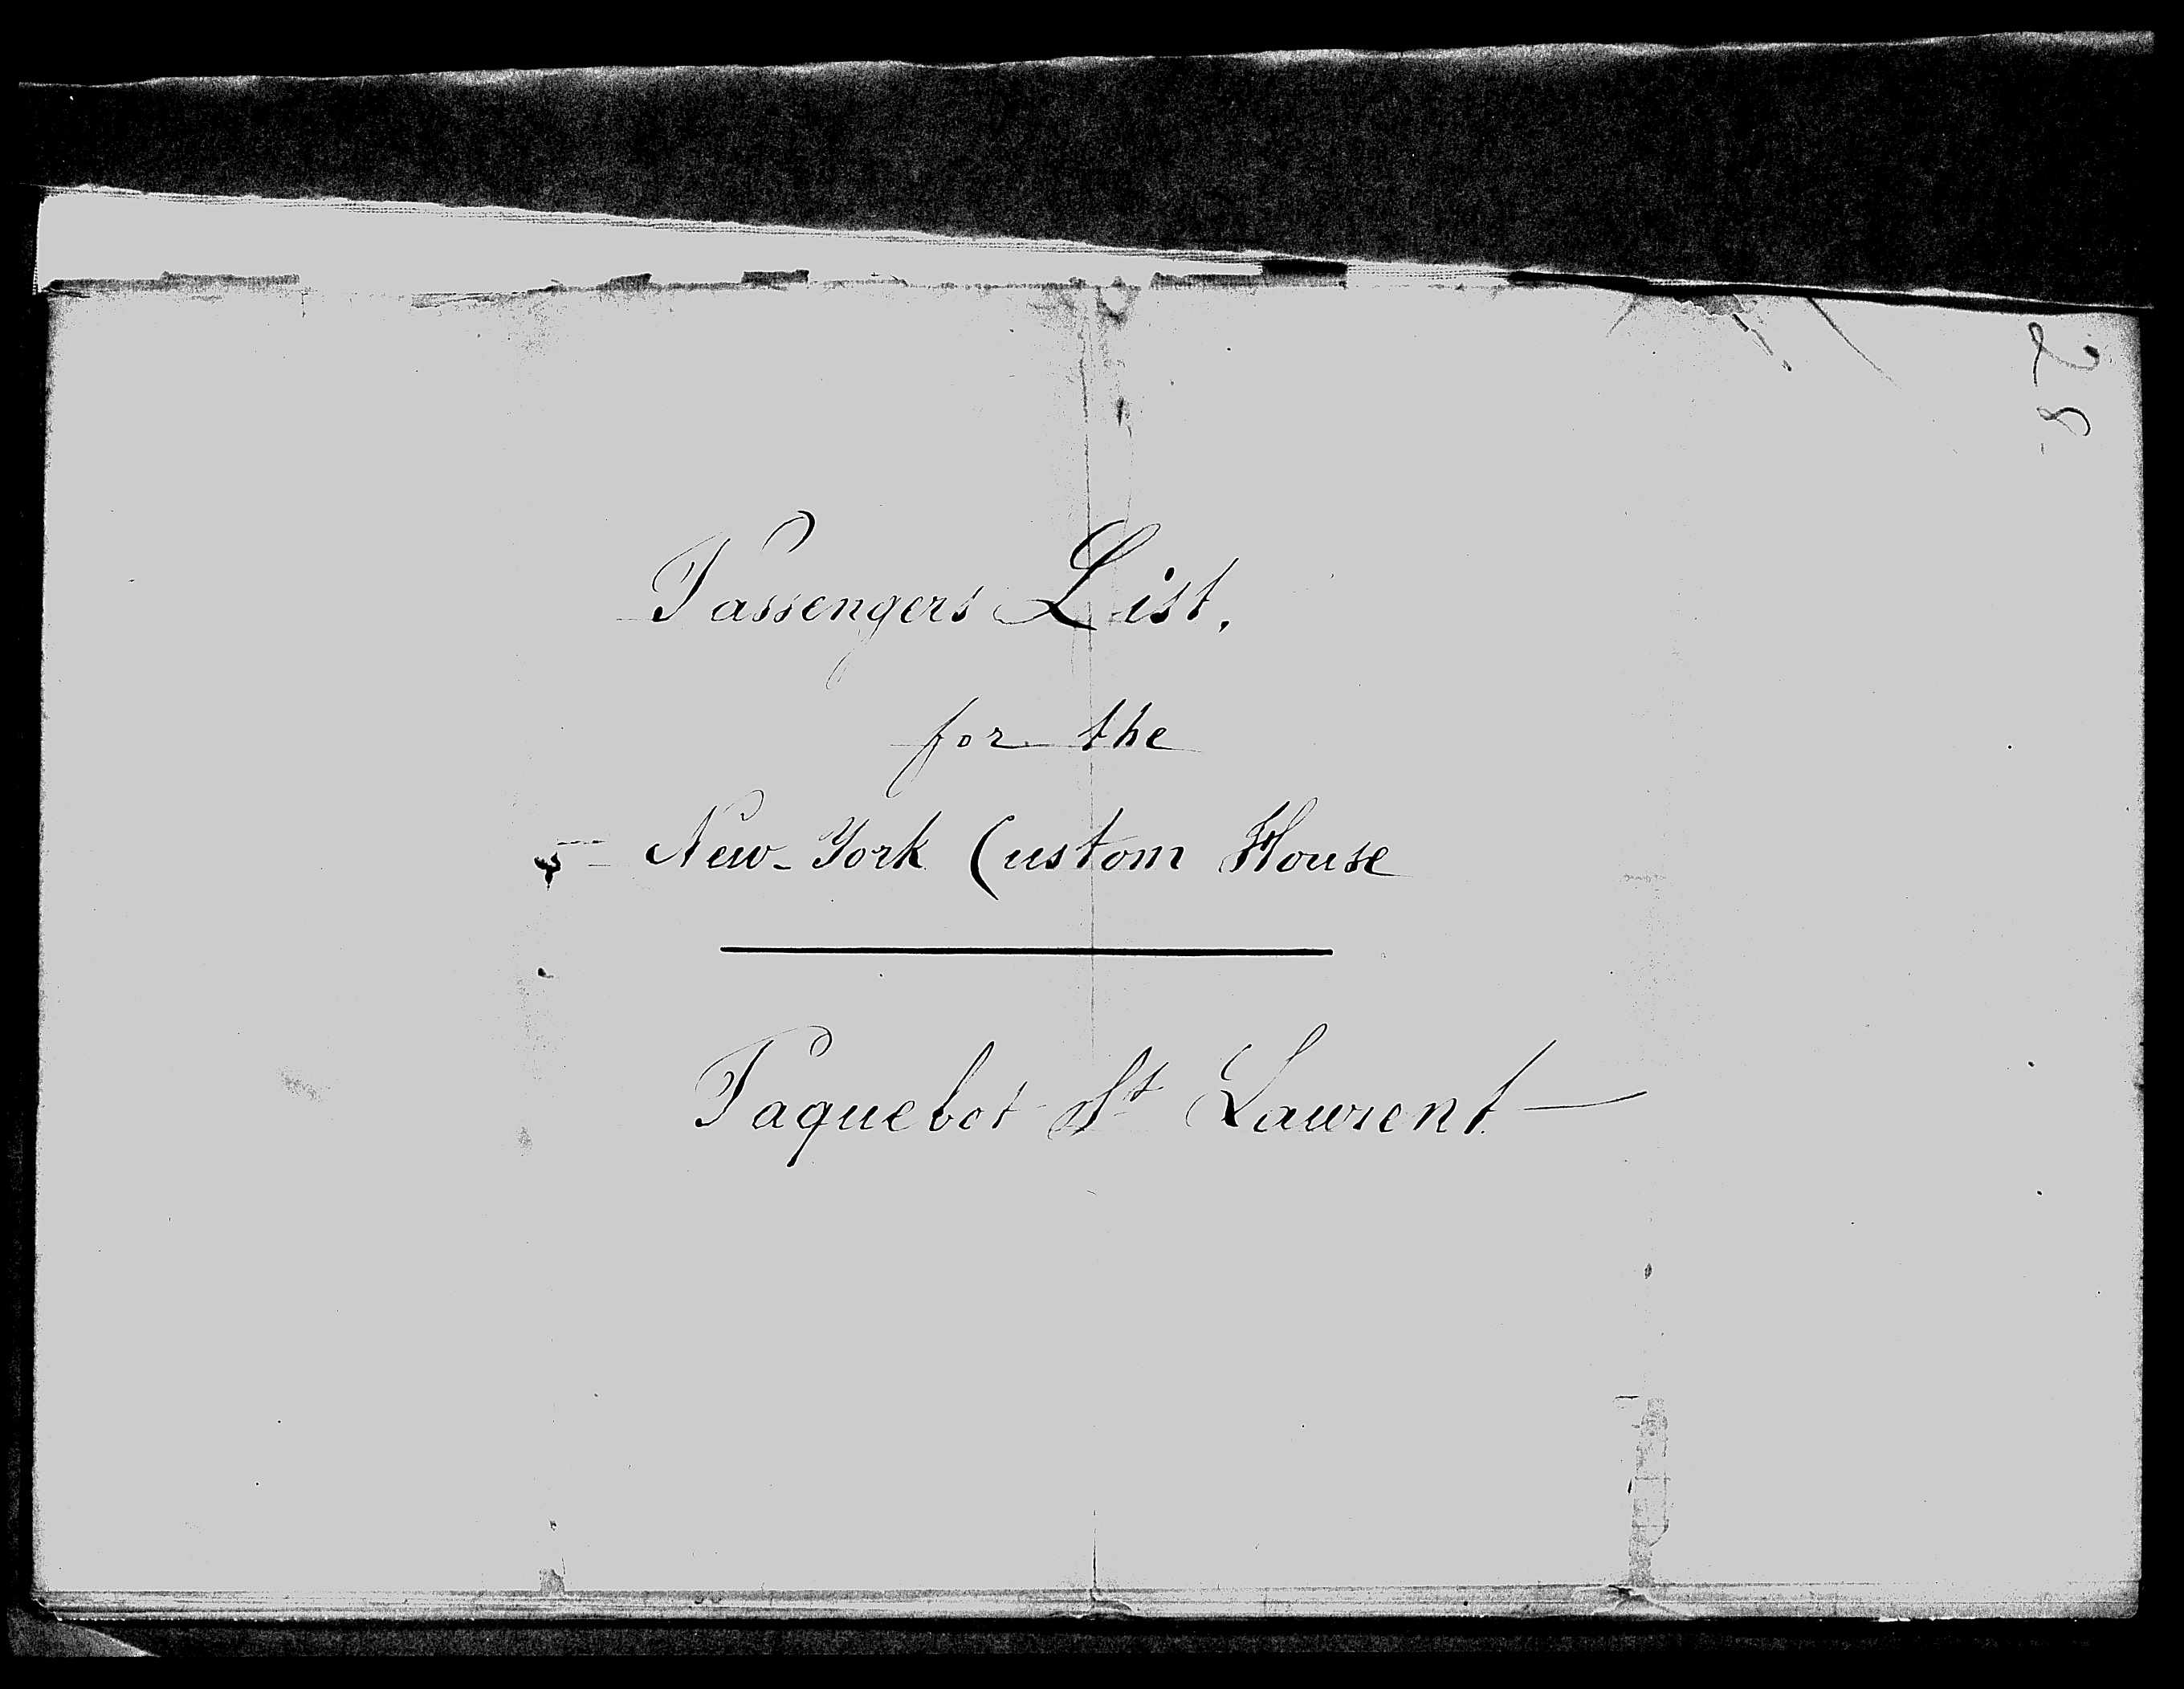 Passengers List.
for the
New-York Custom House
Paquebot St Laurent